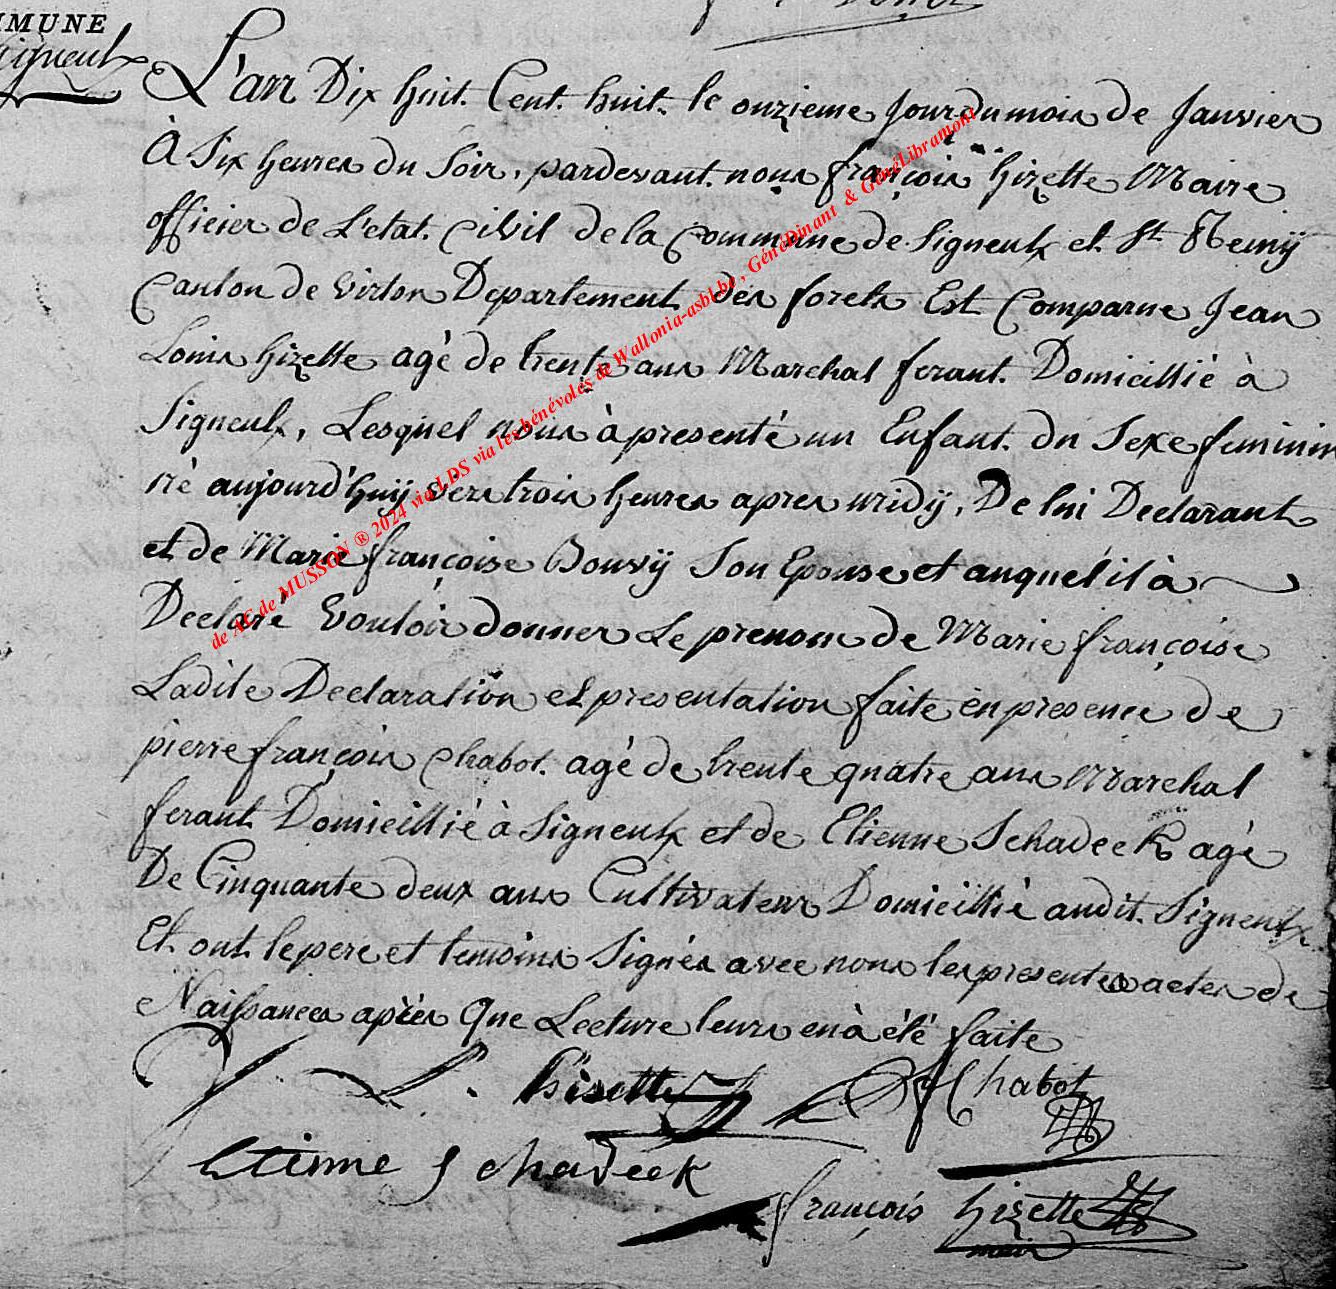 MMUNE
Signeulx
L'an Dix huit. Cent. huit. le onzieme Jour du mois de Janvier
À Six heures du Soir, pardevant. nous françois hizette Maire
officier de L'etat. Civil de la Commune de Signeulx et St Remÿ
Canton de Virton Departement des forets Est Comparue Jean
Louis hizette agé de trente ans Marchal ferant. Domicillié à
Signeulx, Lesquel nous à presenté un Enfant. du Sexe feminin
né aujourd'huÿ vers trois heures apres midÿ, De lui Declarant
et de Marie françoise Bouvÿ Son Epouse et auquel il à
Declaré Vouloir donner Le prenom de Marie françoise
Ladite Declaration et presentation faite en presence de
pierre françois Chabot. agé de trente quatre ans Marchal
ferant Domicillié à Signeulx et de Etienne Schadeck agé
De Cinquante deux ans Cultivateur Domicillié audit. Signeulx
Et. ont le pere et temoins Signés avec nous les presentes actes de
Naissances après Que Lecture leurs en à été faite
J. L. hisette Chabot
Etienne Schadeck
françois hizette
mair
de AC de MUSSON ® 2024 via LDS via les bénévoles de Wallonia-asbl.be, GénéDinant & GénéLibramont